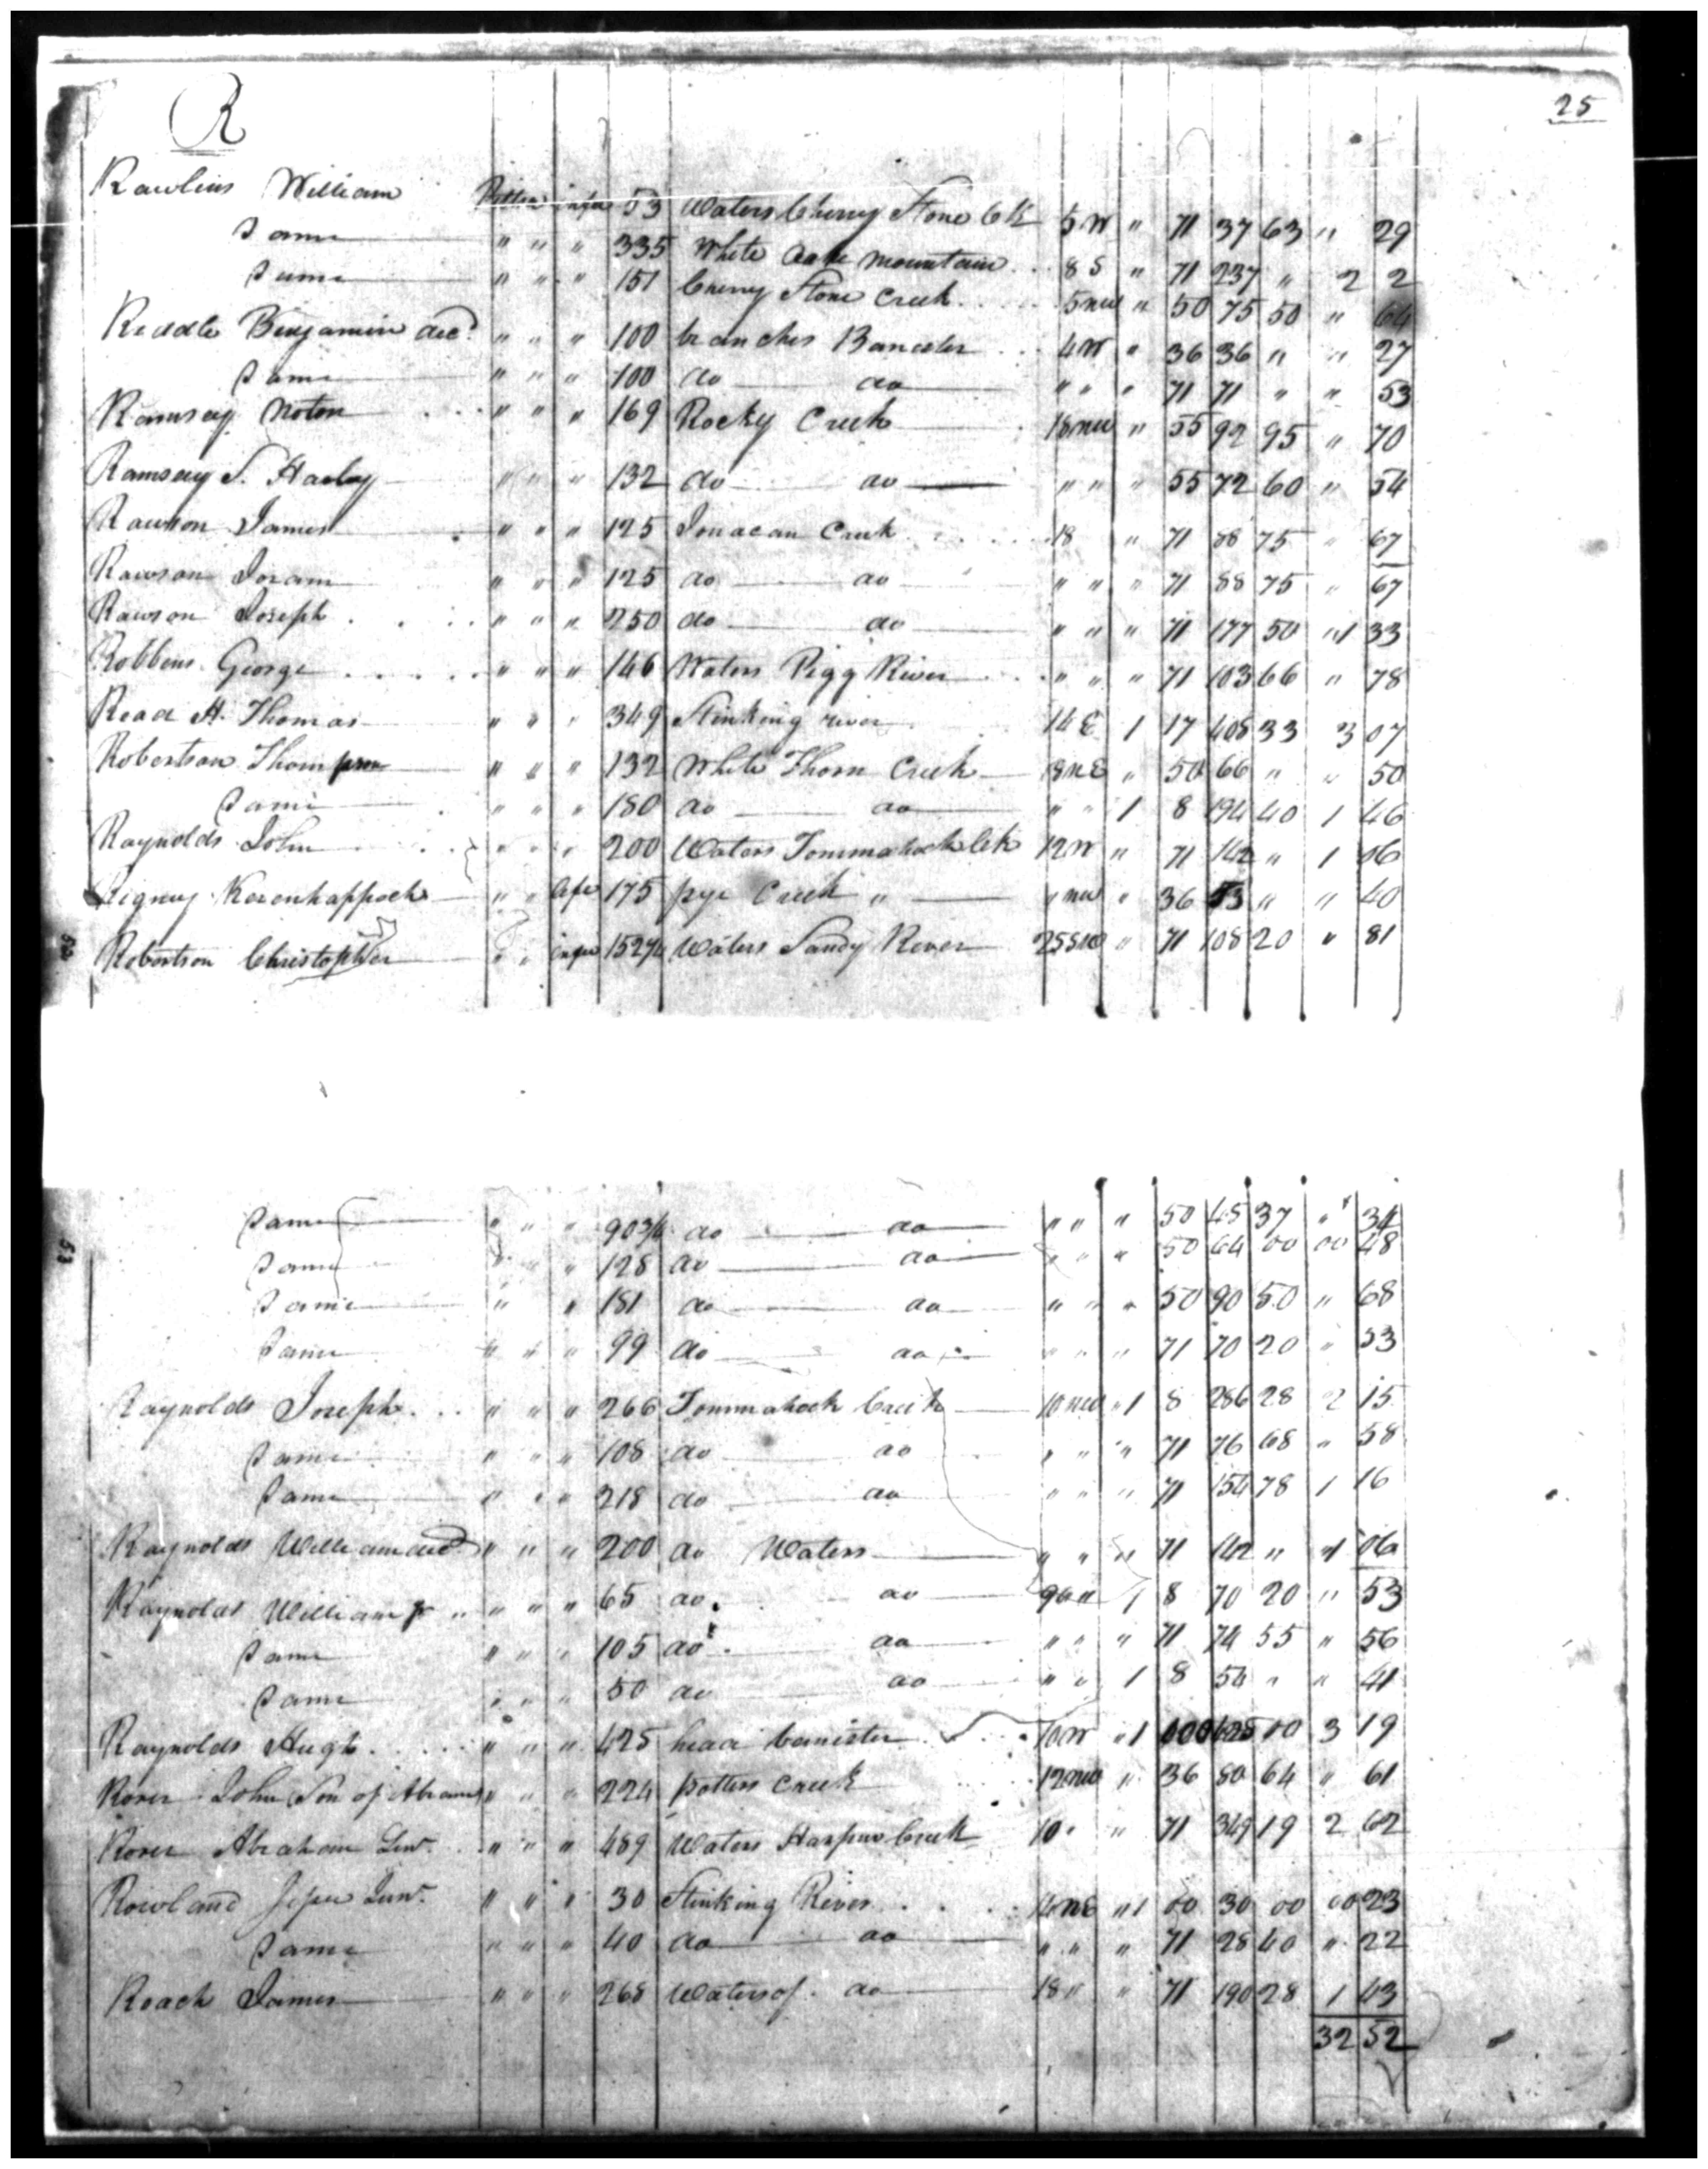 25
R
Rawlins William Pittsa in fee 53 Waters Cherry Stone Ck 5 W " 71 37 63 " 29
Same " " " 335 White Oake Mountain 8 S " 71 237 " 2 2
Same " " " 151 Cherry Stone Creek 5 NW " 50 75 50 " 64
Reddle Benjamin decd " " " 100 branches Banester 4 W " 36 36 " " 27
Same " " " 100 do do " " " 71 71 " " 53
Ramsey Noton " " " 169 Rocky Creek 18 NW " 55 92 95 " 70
Ramsey S. Harley " " " 132 do do " " " 55 72 60 " 54
Rawson James " " " 125 Creek 18 " 71 88 75 " 67
Rawson Joram " " " 125 do do " " " 71 88 75 " 67
Rawson Joseph " " " 250 do do " " " 71 177 50 " 1 33
Robbins George " " " 146 Waters Pigg River " " " 71 103 66 " 78
Read H. Thomas " " " 349 Stinking river 14 E 1 17 408 33 3 07
Robertson Thompson " " " 132 White Thorn Creek 18 NE " 50 66 " " 50
Same " " " 180 do do " " 1 8 194 40 1 46
Raynolds John " " " 200 Waters Tommahock Ck 12 W " 71 142 " 1 06
Rigney Kerenhappoch " " life 175 pye Creek " " NW " 36 63 " " 40
Robertson Christopher " " in fee 152 1/4 Waters Sandy River 25 SW " 71 108 20 " 81
Same " " " 90 3/4 do do " " " 50 45 37 " 34
Same " " " 128 do do " " " 50 64 00 00 48
Same " " 181 do do " " " 50 90 50 " 68
Same " " " 99 do do " " " 71 70 20 " 53
Raynolds Joseph " " " 266 Tommahock Creek 10 NW " 1 8 286 28 2 15
Same " " " 108 do do " " " 71 76 68 " 58
Same " " " 218 do do " " " 71 154 78 1 16
Raynolds William decd " " " 200 do Waters " " " 71 142 " 1 06
Raynolds William Jr " " " 65 do do " 1 8 70 20 " 53
Same " " " 105 do do " " " 71 74 55 " 56
Same " " " 50 do do " " 1 8 54 " " 41
Raynolds Hugh " " " 425 head banister 10 W " 1 00 425 00 3 19
Rorer John Son of Abram " " " 224 potters creek 12 NW " 36 80 64 " 61
Rorer Abraham Senr. " " " 489 Waters Harpins Creek 10 " " 71 349 19 2 62
Rowland Jesse Junr. " " " 30 Stinking River 14 NE " 1 00 30 00 00 23
Same " " " 40 do do " " " 71 28 40 " 22
Roach James " " " 268 Waters of do 18 " " 71 190 28 1 43
32 52